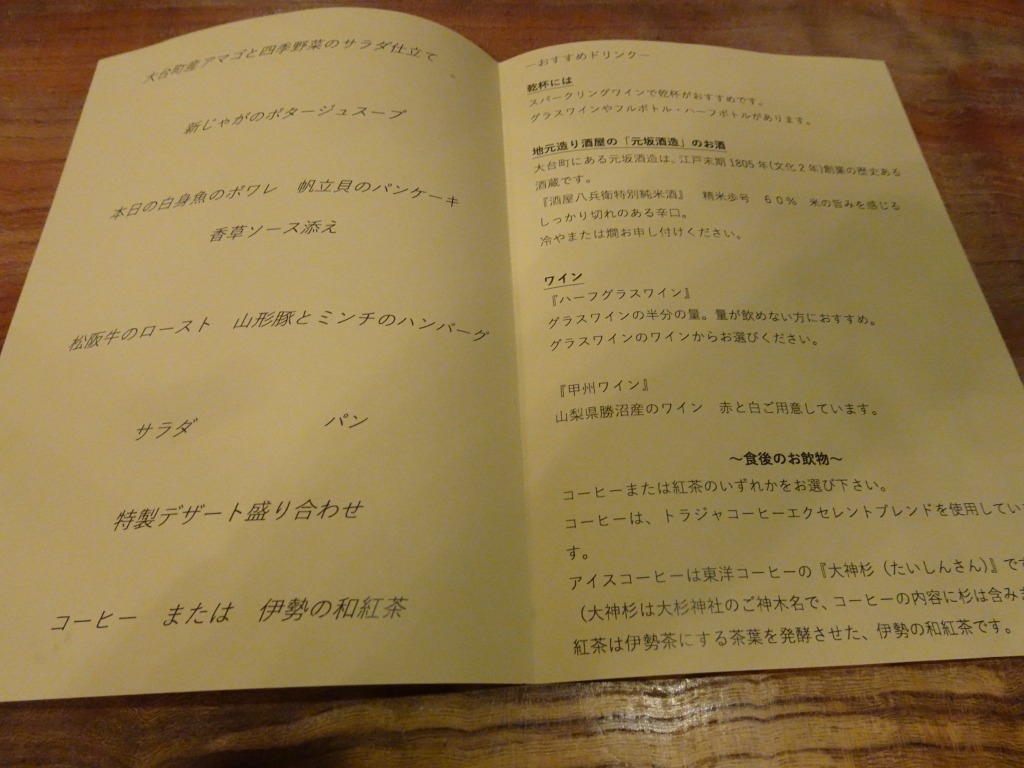 大台町産アマゴと四季野菜のサラダ仕立て
新じゃがのポタージュスープ
本日の白身魚のポワレ　帆立貝のパンケーキ
香草ソース添え
松阪牛のロースト　山形豚とミンチのハンバーグ
サラダ　パン
特製デザート盛り合わせ
コーヒー　または　伊勢の和紅茶
―おすすめドリンク―
乾杯には
スパークリングワインで乾杯がおすすめです。
グラスワインやフルボトル・ハーフボトルがあります。
地元造り酒屋の「元坂酒造」のお酒
大台町にある元坂酒造は、江戸末期1805年(文化2年)創業の歴史ある
酒蔵です。
『酒屋八兵衛特別純米酒』　精米歩号　60%　米の旨みを感じる
しっかり切れのある辛口。
冷やまたは燗お申し付けください。
ワイン
『ハーフグラスワイン』
グラスワインの半分の量。量が飲めない方におすすめ。
グラスワインのワインからお選びください。
『甲州ワイン』
山梨県勝沼産のワイン　赤と白ご用意しています。
～食後のお飲物～
コーヒーまたは紅茶のいずれかをお選び下さい。
コーヒーは、トラジャコーヒーエクセレントブレンドを使用してい
す。
アイスコーヒーは東洋コーヒーの『大神杉（たいしんさん）』です
（大神杉は大杉神社のご神木名で、コーヒーの内容に杉は含み
紅茶は伊勢茶にする茶葉を発酵させた、伊勢の和紅茶です。